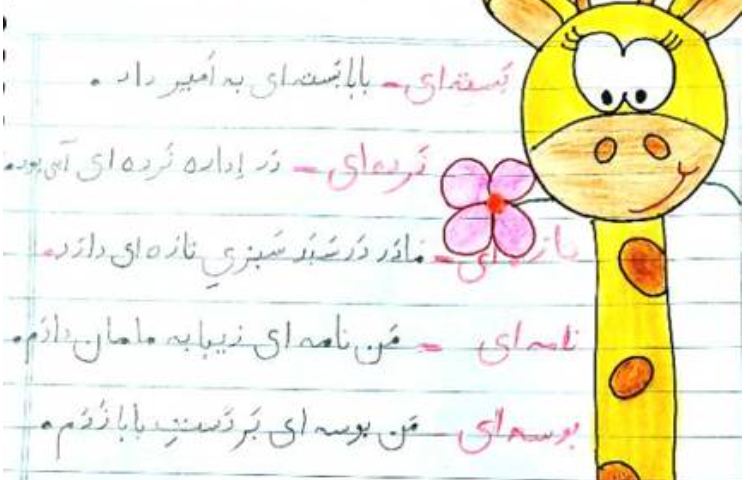 بَسته‌ای - بابا بَسته‌ای به اَمیر داد .
نَرده‌ای - دَر اِداره نَرده‌ای آبی بود.
تازه‌ای - مادَر دَر سَبَد سَبزیِ تازه‌ای دارَد.
نامه‌ای - مَن نامه‌ای زیبا به مامان دادَم.
بوسه‌ای - مَن بوسه‌ای بَر دَستِ بابا زَدَم.